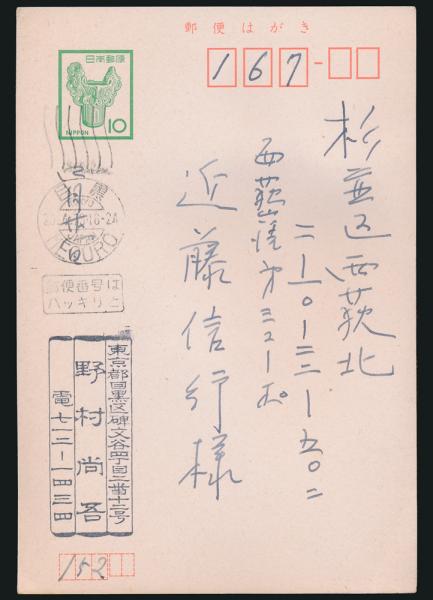 郵便はがき
167
日本郵便
NIPPON
10
杉並区西荻北
二-一〇-二二-五〇二
西荻窪第三コーポ
近藤信行様
目黒
MEGURO
郵便番号は
ハッキリと
東京都目黒区碑文谷四丁目二番十三号
野村尚吾
電七一二-一四三四
152